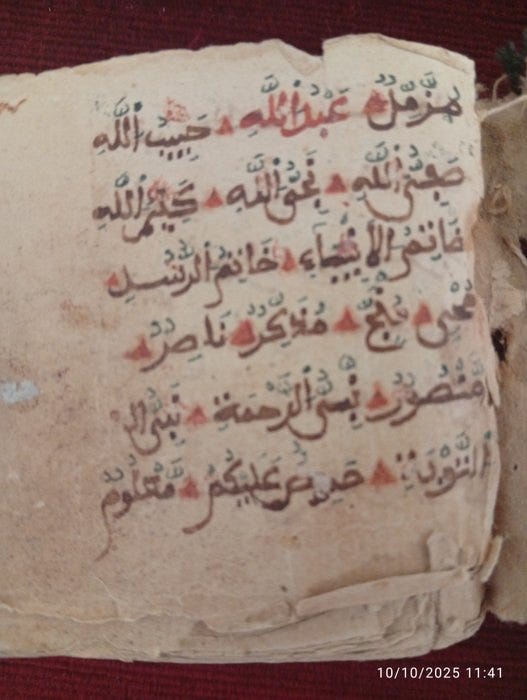 مُزَّمِّلٌ عَبْدُ اللَّهِ حَبِيبُ اللَّهِ
صَفِيُّ اللَّهِ نَجِيُّ اللَّهِ كَلِيمُ اللَّهِ
خَاتِمُ الْأَنْبِيَاءِ خَاتِمُ الرُّسُلِ
مُحْيِي مُنْجٍ مُذَكِّرٌ نَاصِرٌ
مَنْصُورٌ نَبِيُّ الرَّحْمَةِ نَبِيُّ ال
التَّوْبَةِ حَرِيصٌ عَلَيْكُمْ مَعْلُومٌ
10/10/2025 11:41